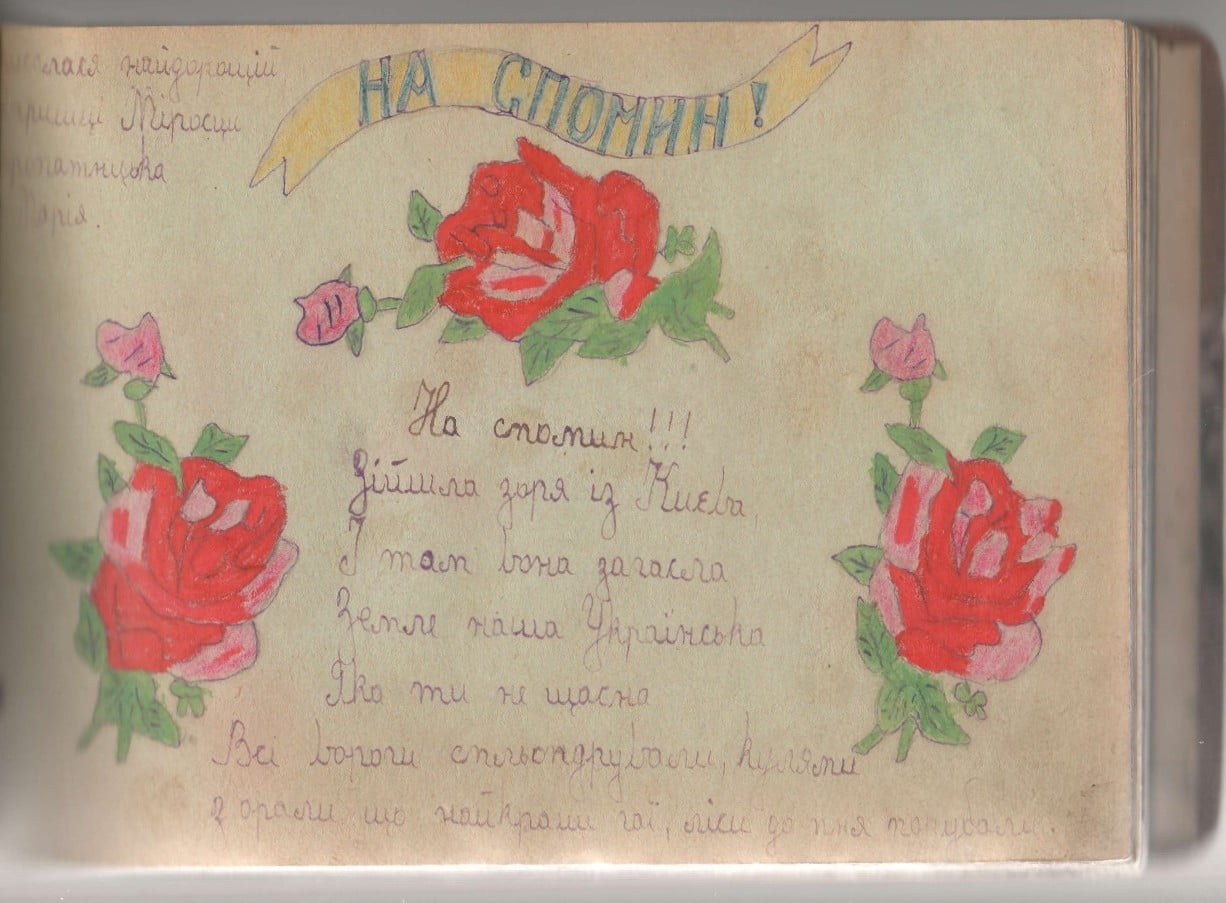 найдорощій
Міросці
НА СПОМИН!
На спомин!!!
Зійшла зоря із Києва,
І там вона загасла
Земле наша Українська
Яка ти не щасна
Всі вороги спльондрували, кулями
з орали що найкращи гаї, ліси до пня порубали.